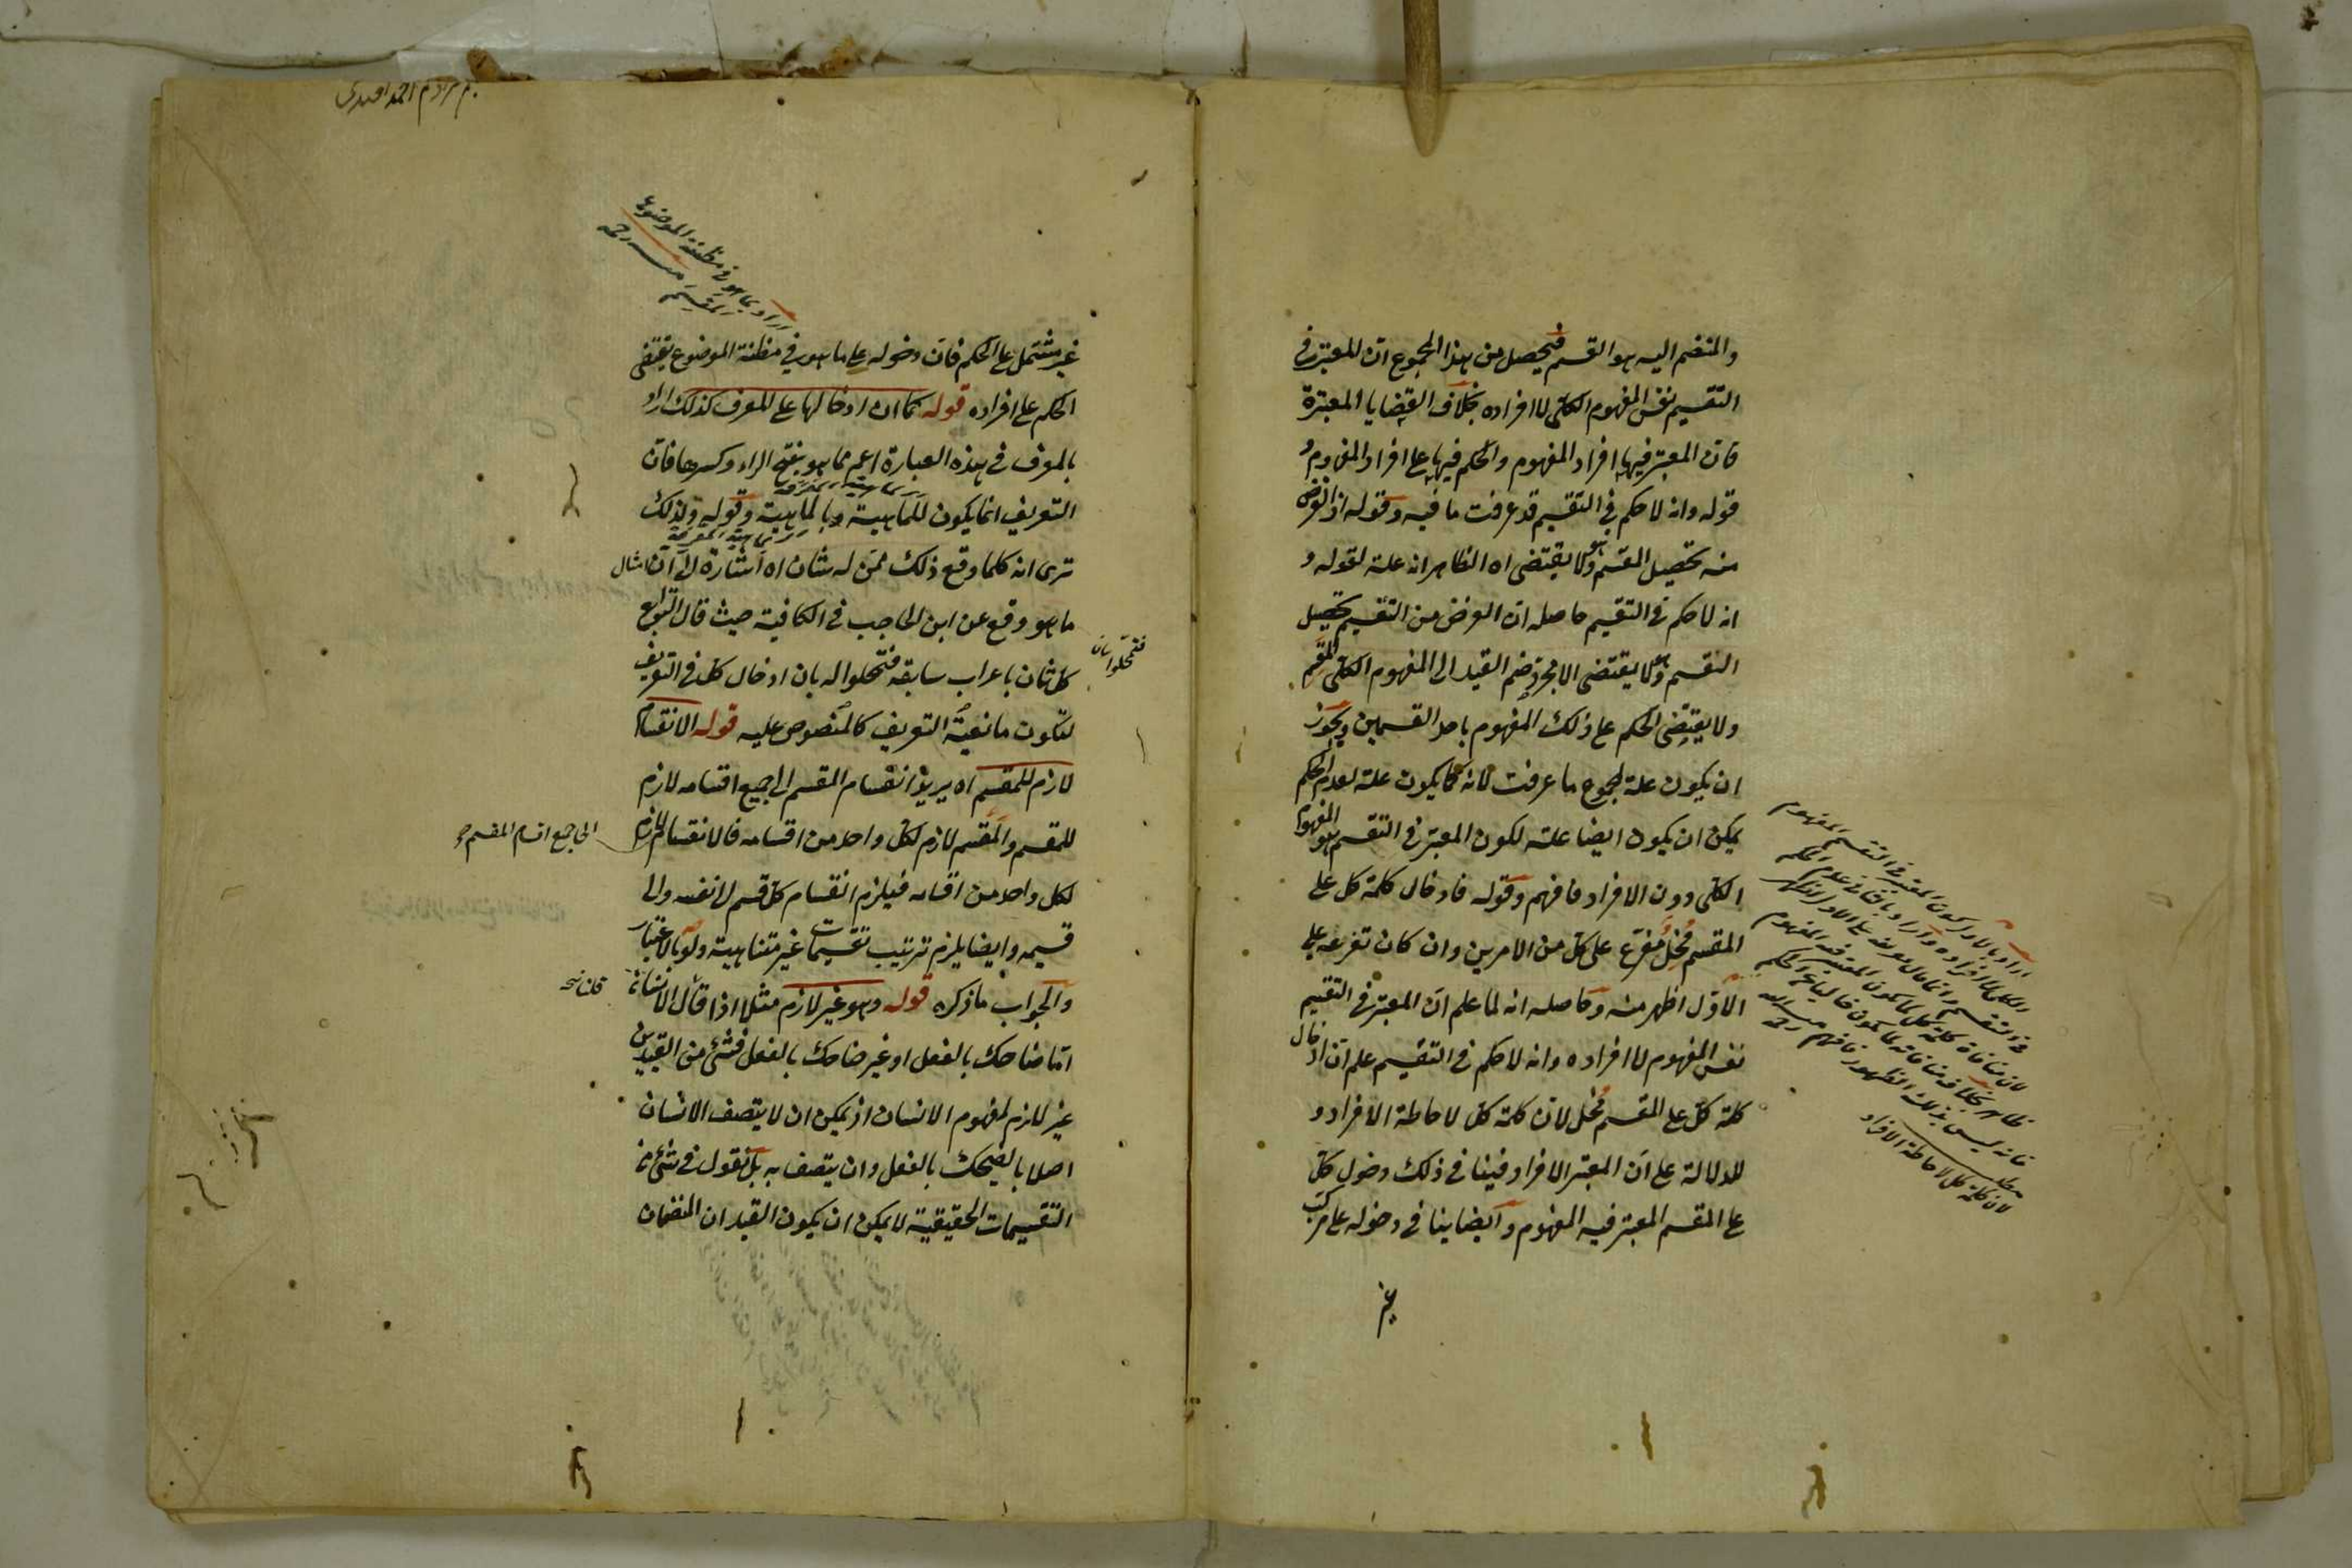 والمنضم اليه هو القسم فيحصل من هذا المجموع ان المعتبر في
التقسيم نفس المفهوم الكلي لا افراده بخلاف القضايا المعتبرة
فان المعتبر فيها افراد المفهوم والحكم فيها على افراد المفهوم و
قوله وانه لا حكم في التقسيم قد عرفت ما فيه وقوله اذ الغرض
منه تحصيل القسم وهو لا يقتضى اه الظاهر انه علة لقوله و
انه لا حكم في التقسيم حاصله ان الغرض من التقسيم تحصيل
القسم وهو لا يقتضى الا مجرد ضم القيد الى المفهوم الكلي المقسم
ولا يقتضى الحكم على ذلك المفهوم باحد القسمين ويجوز
ان يكون علة لمجموع ما عرفت لانه كما يكون علة لعدم الحكم
يمكن ان يكون ايضا علة لكون المعتبر في التقسيم هو المفهوم
الكلي دون الافراد فافهم وقوله فادخال كلمة كل على
المقسم مخل مفرع على كل من الامرين وان كان تفرعه على
الاول اظهر منه وحاصله انه لما علم ان المعتبر في التقسيم
نفس المفهوم لا افراده وانه لا حكم في التقسيم علم ان ادخال
كلمة كل على المقسم مخل لان كلمة كل لاحاطة الافراد و
للدلالة على ان المعتبر الافراد فينافي ذلك دخول كل
على المقسم المعتبر فيه المفهوم وايضا ينافي دخوله على مركب
غير
لان كلمة كل لاحاطة الافراد
غير مشتمل على الحكم فان دخوله على ما هو في مظنة الموضوع يقتضى
الحكم على افراده قوله كما ان ادخالها على المعرف كذلك اراد
بالمعرف في هذه العبارة اعم مما هو بفتح الراء وكسرها فان
التعريف انما يكون للماهية وبالماهية وقوله ولذلك
ترى انه كلما وقع ذلك ممن له شان اه اشارة الى ان امثال
ما هو وقع عن ابن الحاجب في الكافية حيث قال التوابع
كل ثان باعراب سابقه فتمحلوا له بان ادخال كل في التعريف
لتكون مانعية التعريف كالمنصوص عليه قوله الانقسام
لازم للمقسم اه يريد انقسام المقسم الى جميع اقسامه لازم
للمقسم والمقسم لازم لكل واحد من اقسامه فالانقسام لازم
لكل واحد من اقسامه فيلزم انقسام كل قسم الى نفسه والى
قسيمه وايضا يلزم ترتيب تقسيمات غير متناهية ولو بالاعتبار
والجواب ما ذكره قوله وهو غير لازم مثلا اذا قال الانسان
اما ضاحك بالفعل او غير ضاحك بالفعل فشئ من القيدين
غير لازم لمفهوم الانسان اذ يمكن ان لا يتصف الانسان
اصلا بالضحك بالفعل وان يتصف به بل نقول في شئ من
التقسيمات الحقيقية لا يمكن ان يكون القيدان المنضمان
فتمحلوا بان
الى جميع اقسام المقسم